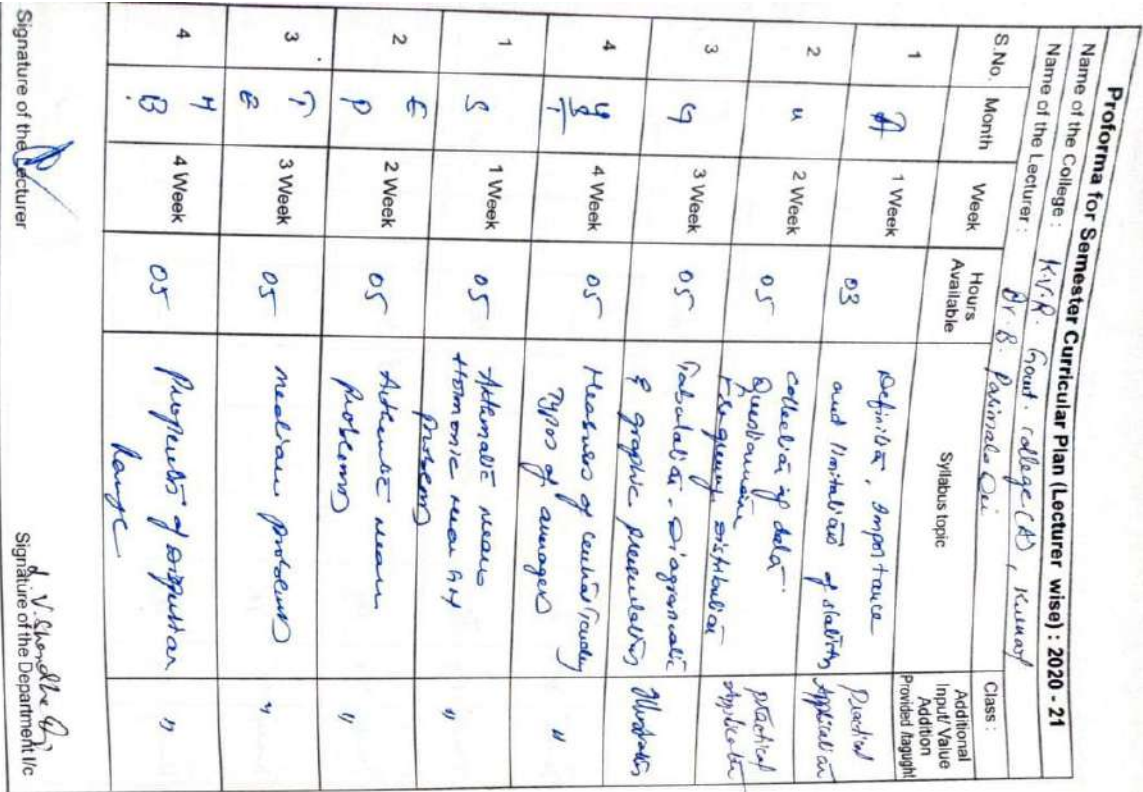 Proforma for Semester Curricular Plan (Lecturer wise) : 2020 - 21
Name of the College : K.V.R. Govt. College (A), Kurnool
Name of the Lecturer : Dr. B. Parimala Devi
Class :
S.No. Month Week Hours Available Syllabus topic Additional Input/ Value Addition Provided /tagught
1 A 1 Week 03 Definition, Importance and limitations of statistics Practical Application
2 u 2 Week 05 collection of data Questionnaire Frequency distribution practical Application
3 G 3 Week 05 Tabulation - Diagrammatic & graphic presentation Illustration
4 4 Week 05 Measures of central tendency Types of averages "
1 S 1 Week 05 Arithmatic means Harmonic mean problems "
2 E P 2 Week 05 Arithmetic mean problems "
3 T E 3 Week 05 median problems "
4 M B 4 Week 05 Properties of dispersion Range "
Signature of the Lecturer
Signature of the Department I/c